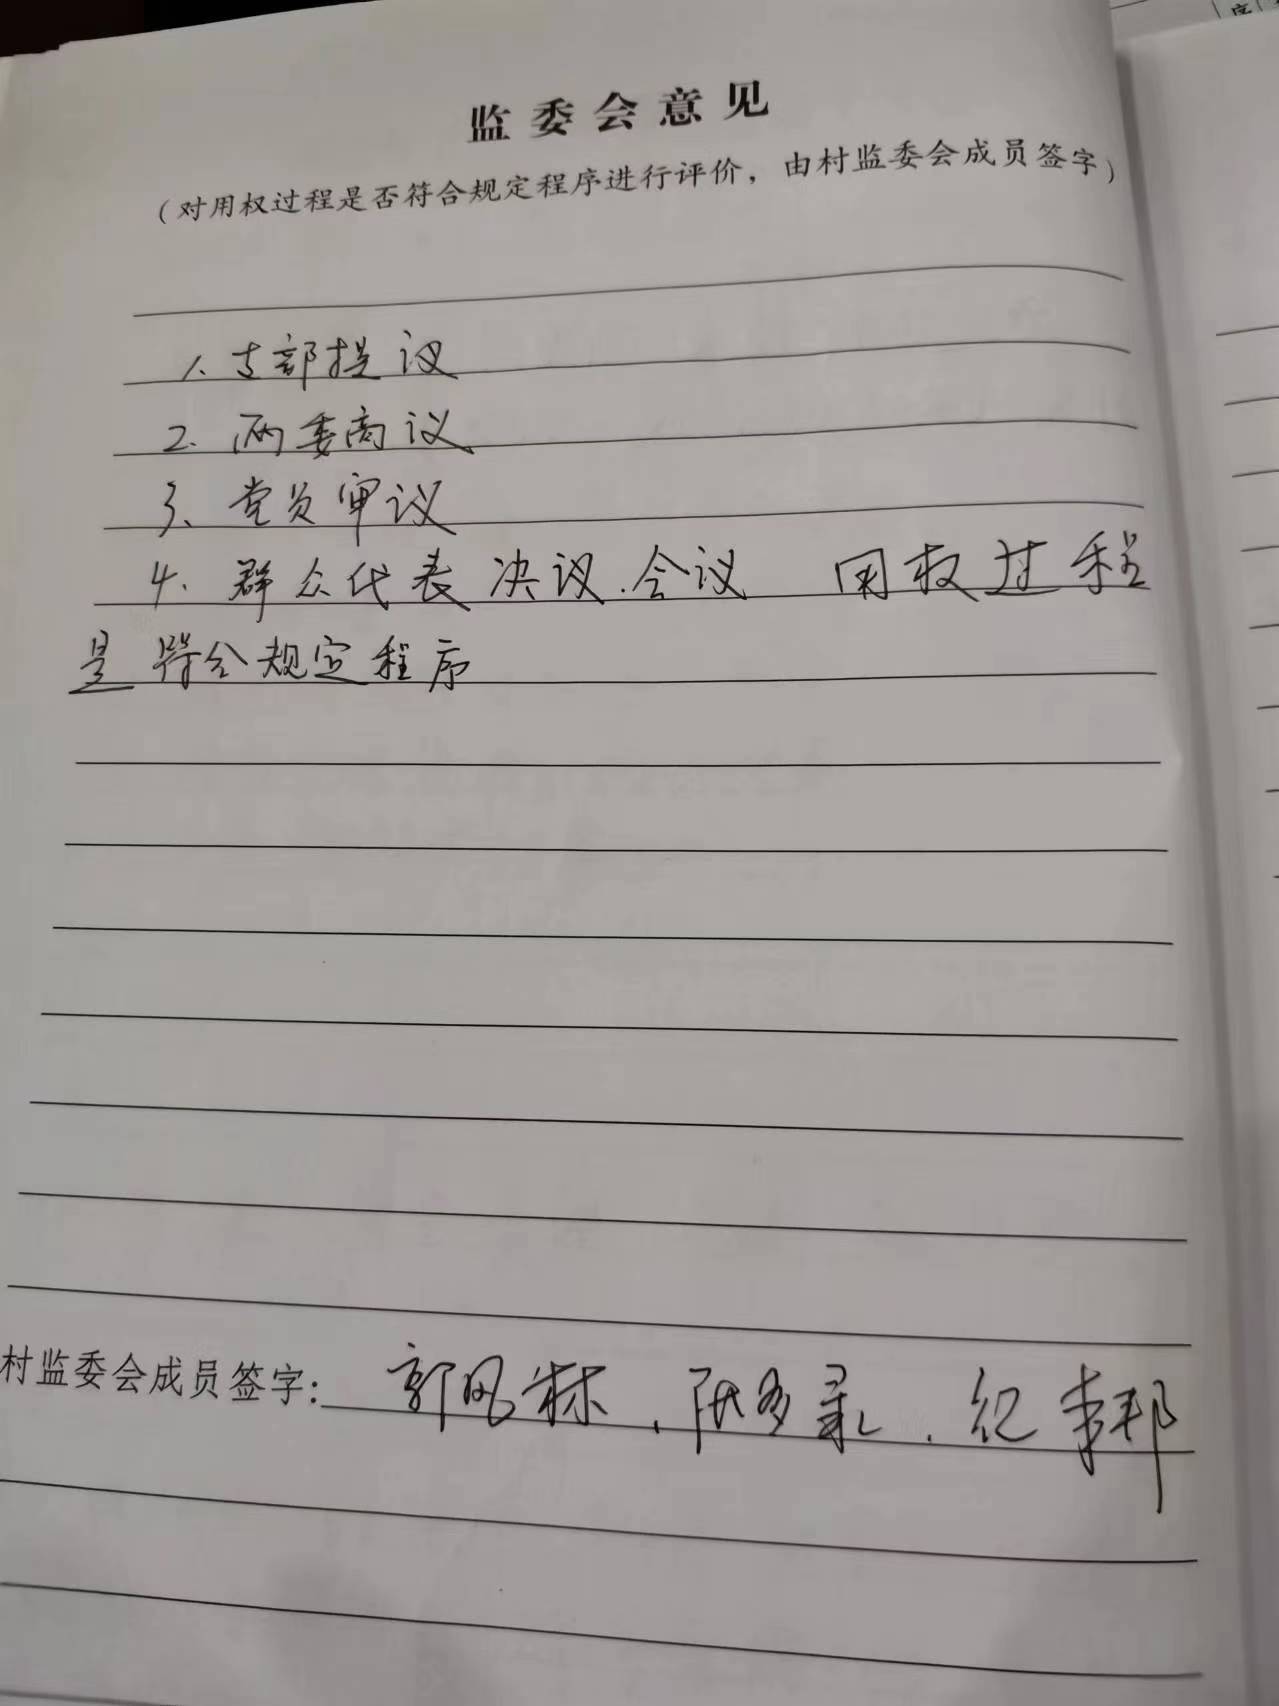 序
监委会意见
（对用权过程是否符合规定程序进行评价，由村监委会成员签字）
1、支部提议
2、两委商议
3、党员审议
4、群众代表决议.会议 用权过程
是符合规定程序
村监委会成员签字：郭风